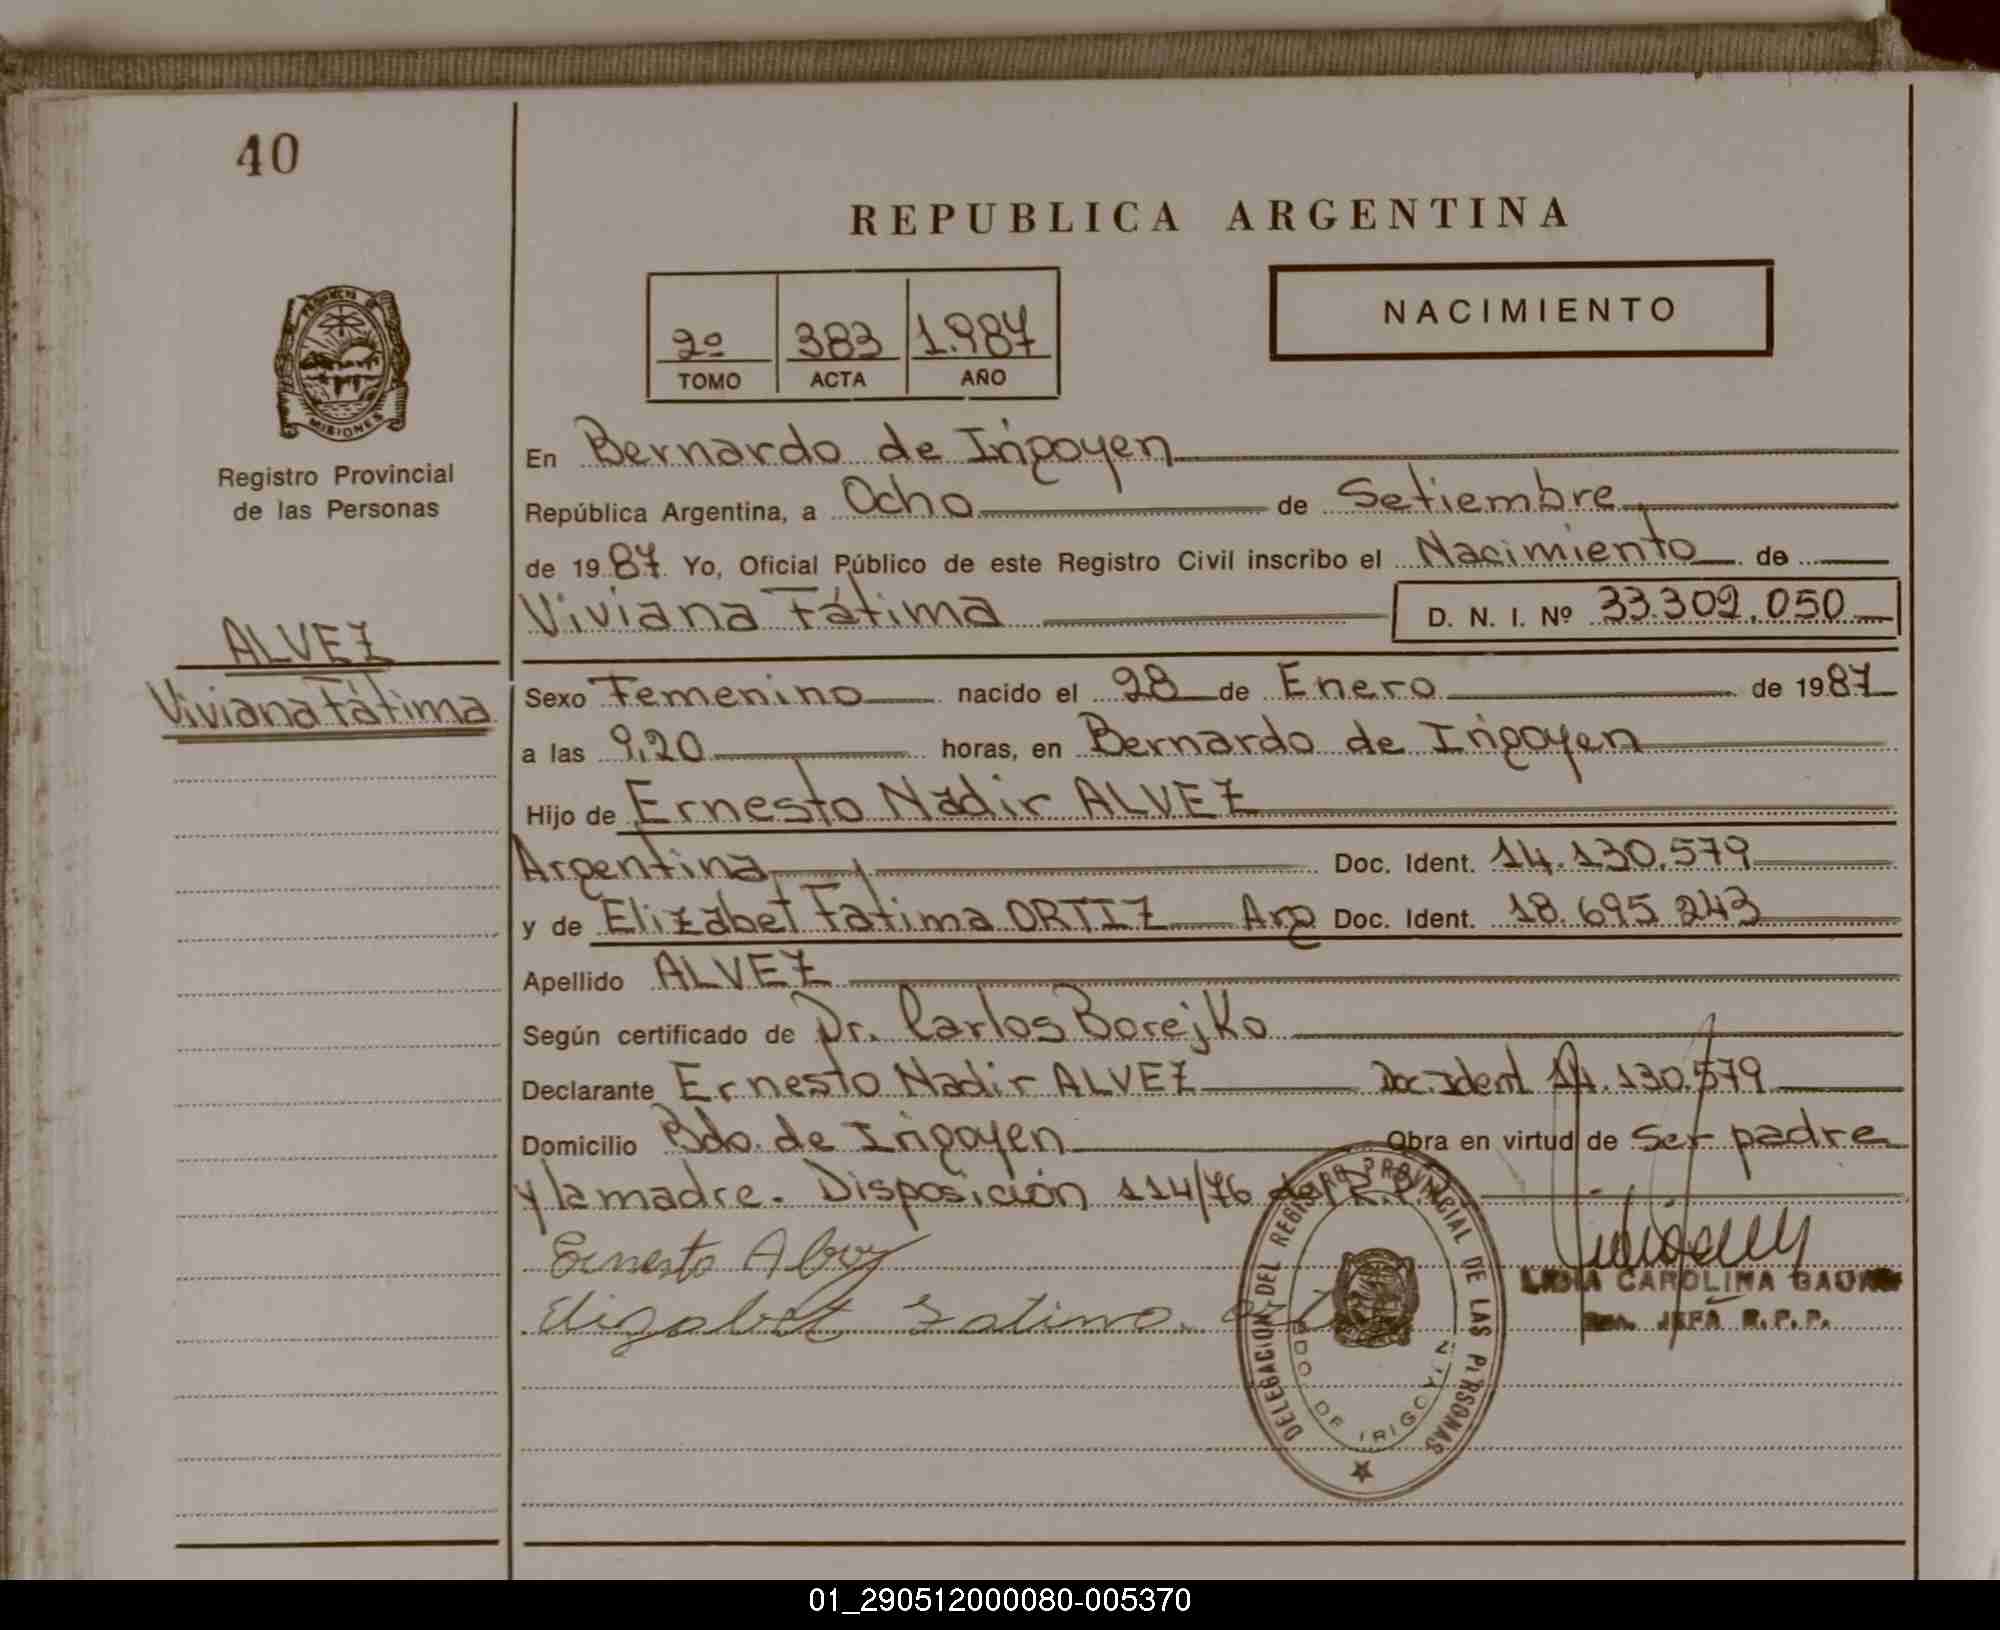 40
REPUBLICA ARGENTINA
NACIMIENTO
2º 383 1.987
TOMO ACTA AÑO
PROVINCIA DE
MISIONES
Registro Provincial
de las Personas
ALVEZ
Viviana Fátima
En Bernardo de Irigoyen
República Argentina, a Ocho de Setiembre
de 1987. Yo, Oficial Público de este Registro Civil inscribo el Nacimiento de
Viviana Fátima D. N. I. Nº 33.302.050
Sexo Femenino nacido el 28 de Enero de 1987
a las 9,20 horas, en Bernardo de Irigoyen
Hijo de Ernesto Nadir ALVEZ
Argentina Doc. Ident. 14.130.579
y de Elizabet Fátima ORTIZ Arg Doc. Ident. 18.695.243
Apellido ALVEZ
Según certificado de Dr. Carlos Borejko
Declarante Ernesto Nadir ALVEZ Doc. Ident 14.130.579
Domicilio Bdo. de Irigoyen Obra en virtud de Ser padre
y la madre. Disposición 114/76
Ernesto
Elizabet Fatima
DELEGACION DEL REGISTRO PROVINCIAL DE LAS PERSONAS
BDO. DE IRIGOYEN
CAROLINA
JEFA R.P.P.
01_290512000080-005370